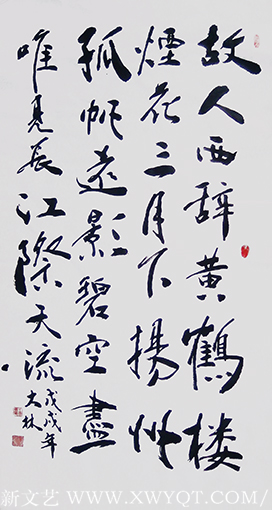 故人西辞黄鹤楼
煙花三月下揚州
孤帆遠影碧空盡
唯見長江際天流
戊戌年
大林
新文艺 / WWW.XWYQT.COM /